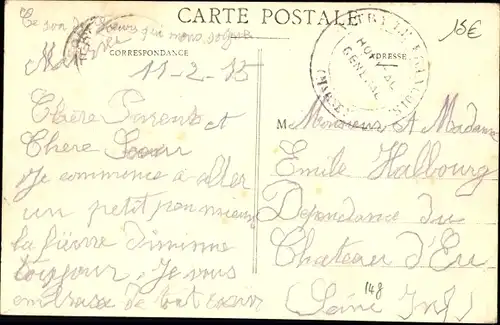 CARTE POSTALE
15€
Ce son des sœurs qui nous soigne
CORRESPONDANCE
ADRESSE
HOPITAL
GENERAL
11-2-15
Chère Parents et
Chere Sœur
Je commence a aller
un petit peu mieux
la fièvre diminue
toujour. Je vous
embrasse de tout cœur
M Monsieur et Madame
Emile Halbourg
Dependance du
Chateau d'Eu
(Seine Inf)
148